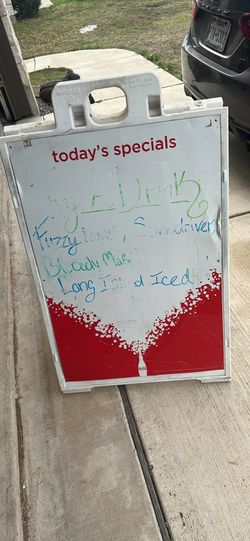 today's specials
Drink
Fuzzy Navel, Screwdriver,
Bloody Mary
Long Island Iced